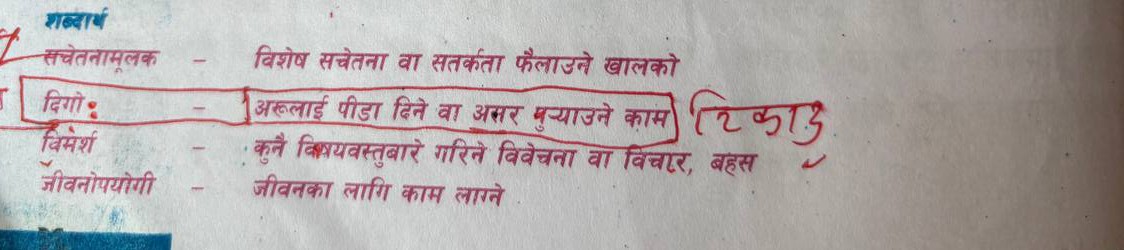 शब्दार्थ
सचेतनामूलक - विशेष सचेतना वा सतर्कता फैलाउने खालको
दिगो: - अरूलाई पीडा दिने वा असर पुऱ्याउने काम टिकाउ
विमर्श - कुनै विषयवस्तुबारे गरिने विवेचना वा विचार, बहस
जीवनोपयोगी - जीवनका लागि काम लाग्ने